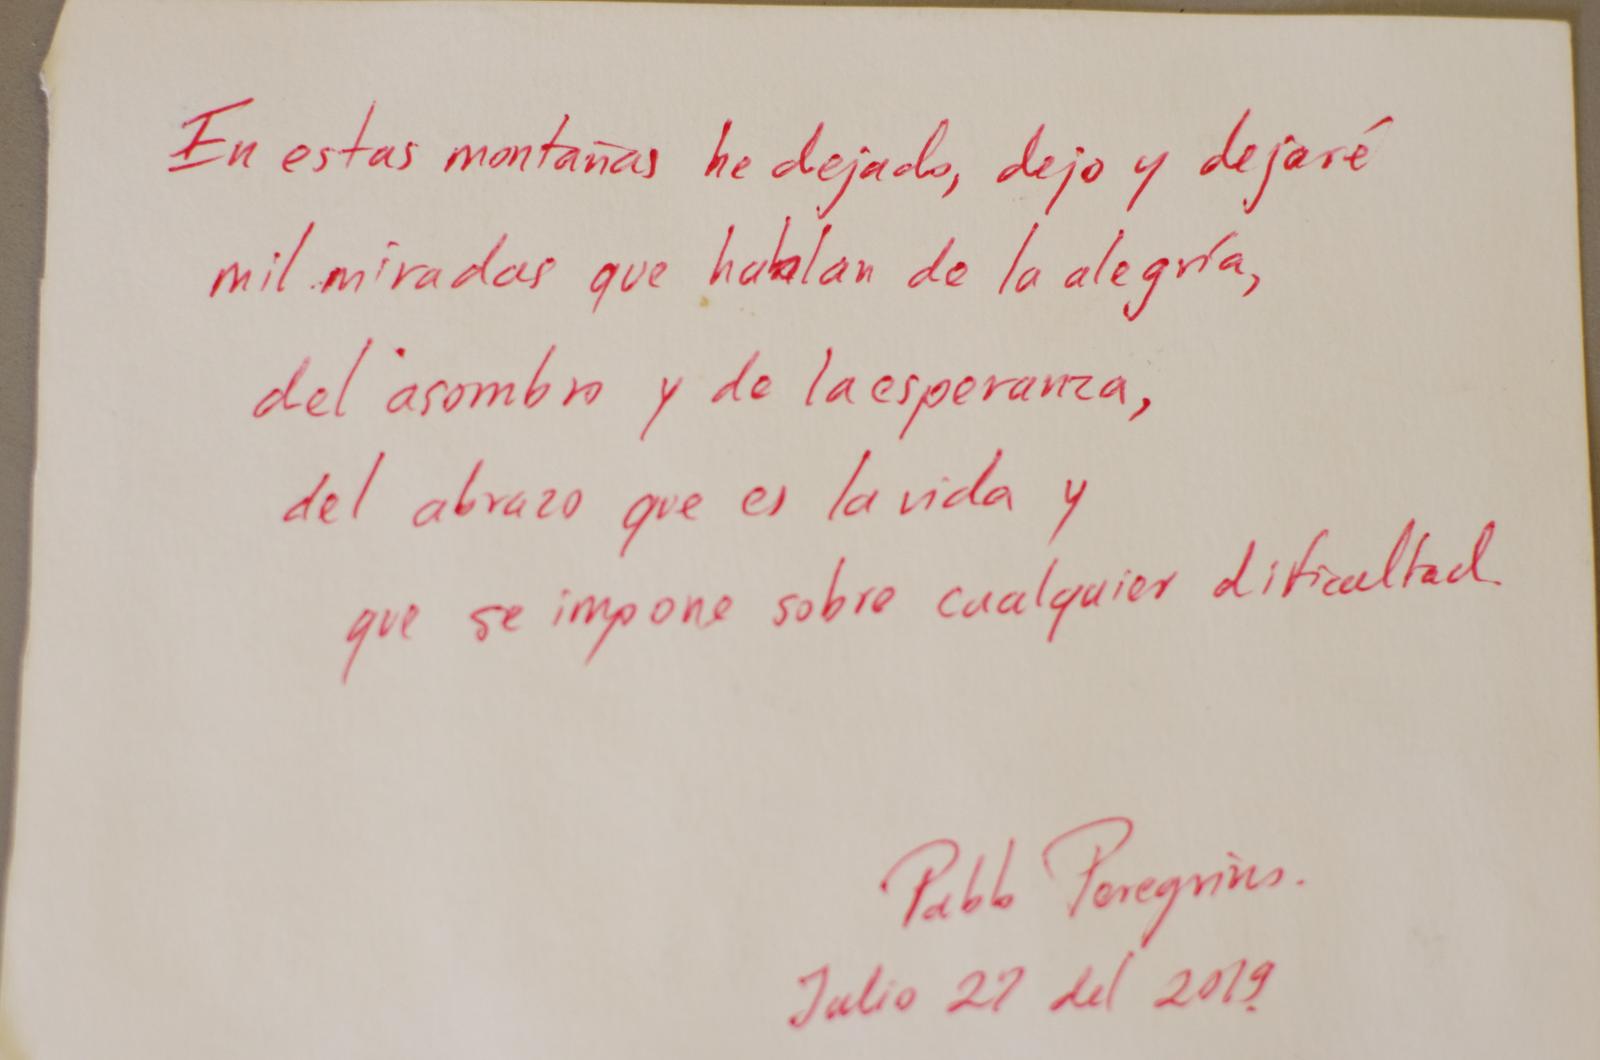 En estas montañas he dejado, dejo y dejaré
mil miradas que hablan de la alegría,
del asombro y de la esperanza,
del abrazo que es la vida y
que se impone sobre cualquier dificultad.
Pablo Peregrino.
Julio 27 del 2019